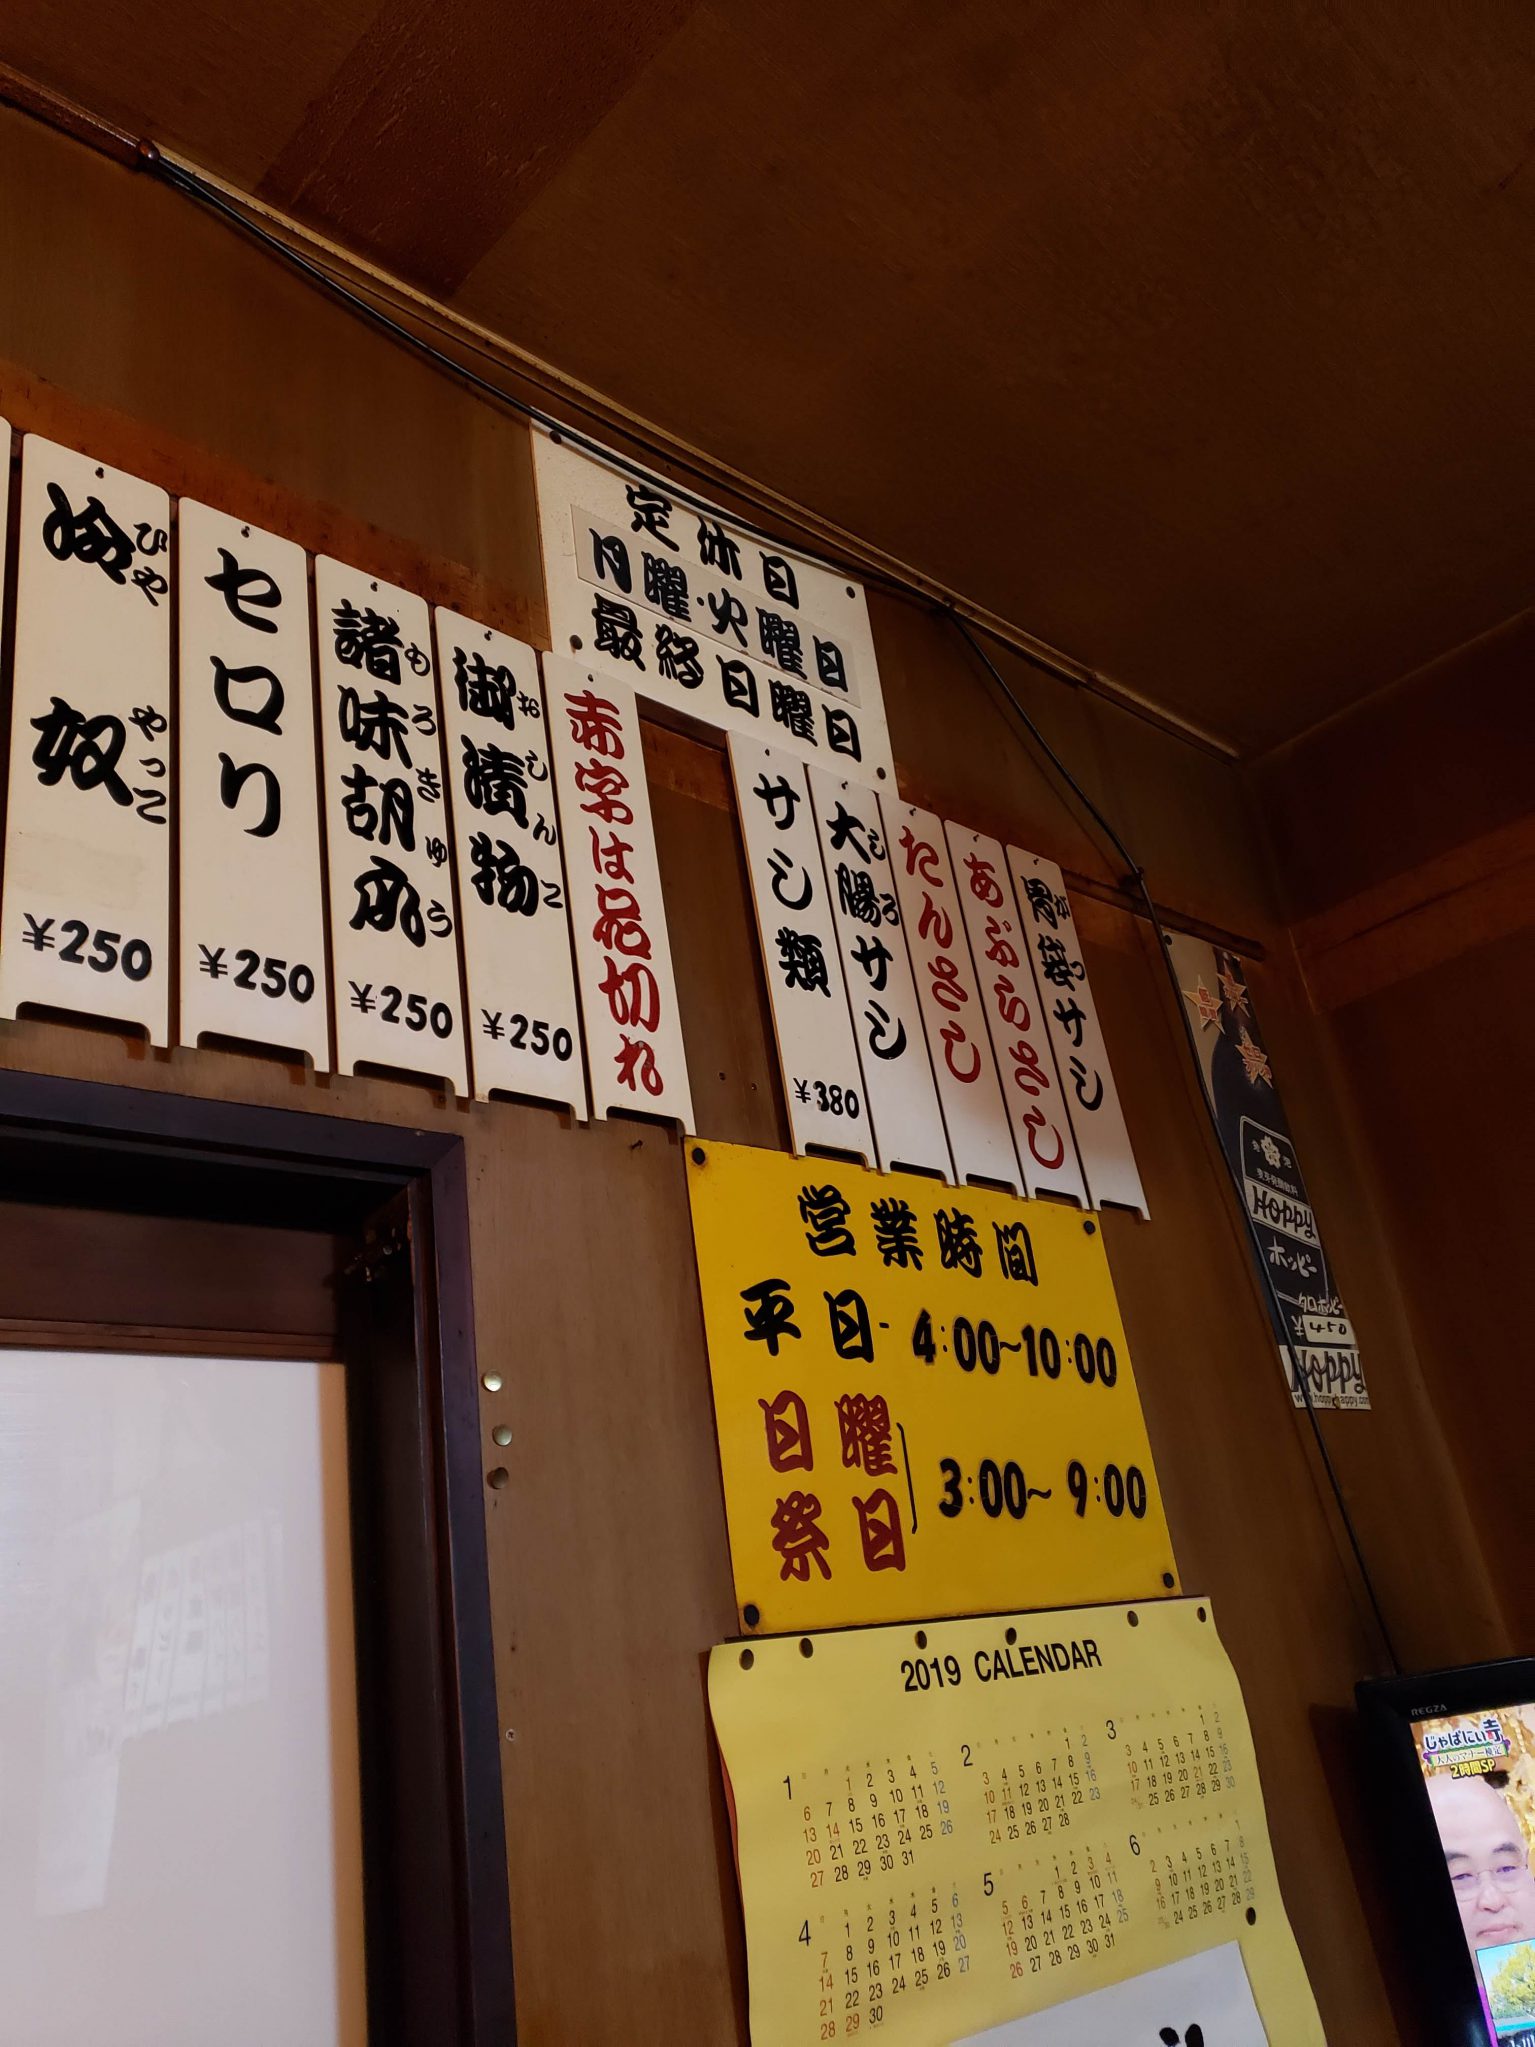 冷奴
ひや
やっこ
¥250
セロリ
¥250
諸味胡瓜
もろきゅう
¥250
御漬物
おしんこ
¥250
赤字は品切れ
定休日
月曜・火曜日
最終日曜日
サシ類
¥380
大腸サシ
しろ
たんさし
あぶらさし
胃袋サシ
がつ
営業時間
平日-4:00~10:00
日曜
祭日
3:00~9:00
Hoppy
ホッピー
¥450
Hoppy
2019 CALENDAR
1
1 2 3 4 5
6 7 8 9 10 11 12
13 14 15 16 17 18 19
20 21 22 23 24 25 26
27 28 29 30 31
2
1 2
3 4 5 6 7 8 9
10 11 12 13 14 15 16
17 18 19 20 21 22 23
24 25 26 27 28
3
1 2
3 4 5 6 7 8 9
10 11 12 13 14 15 16
17 18 19 20 21 22 23
25 26 27 28 29 30
4
1 2 3 4 5 6
7 8 9 10 11 12 13
14 15 16 17 18 19 20
21 22 23 24 25 26 27
28 29 30
5
1 2 3 4
5 6 7 8 9 10 11
12 13 14 15 16 17 18
19 20 21 22 23 24 25
26 27 28 29 30 31
6
1
2 3 4 5 6 7 8
9 10 11 12 13 14 15
16 17 18 19 20 21 22
24 25 26 27 28 29
REGZA
じゃぱにい寺
大人のマナー検定
2時間SP